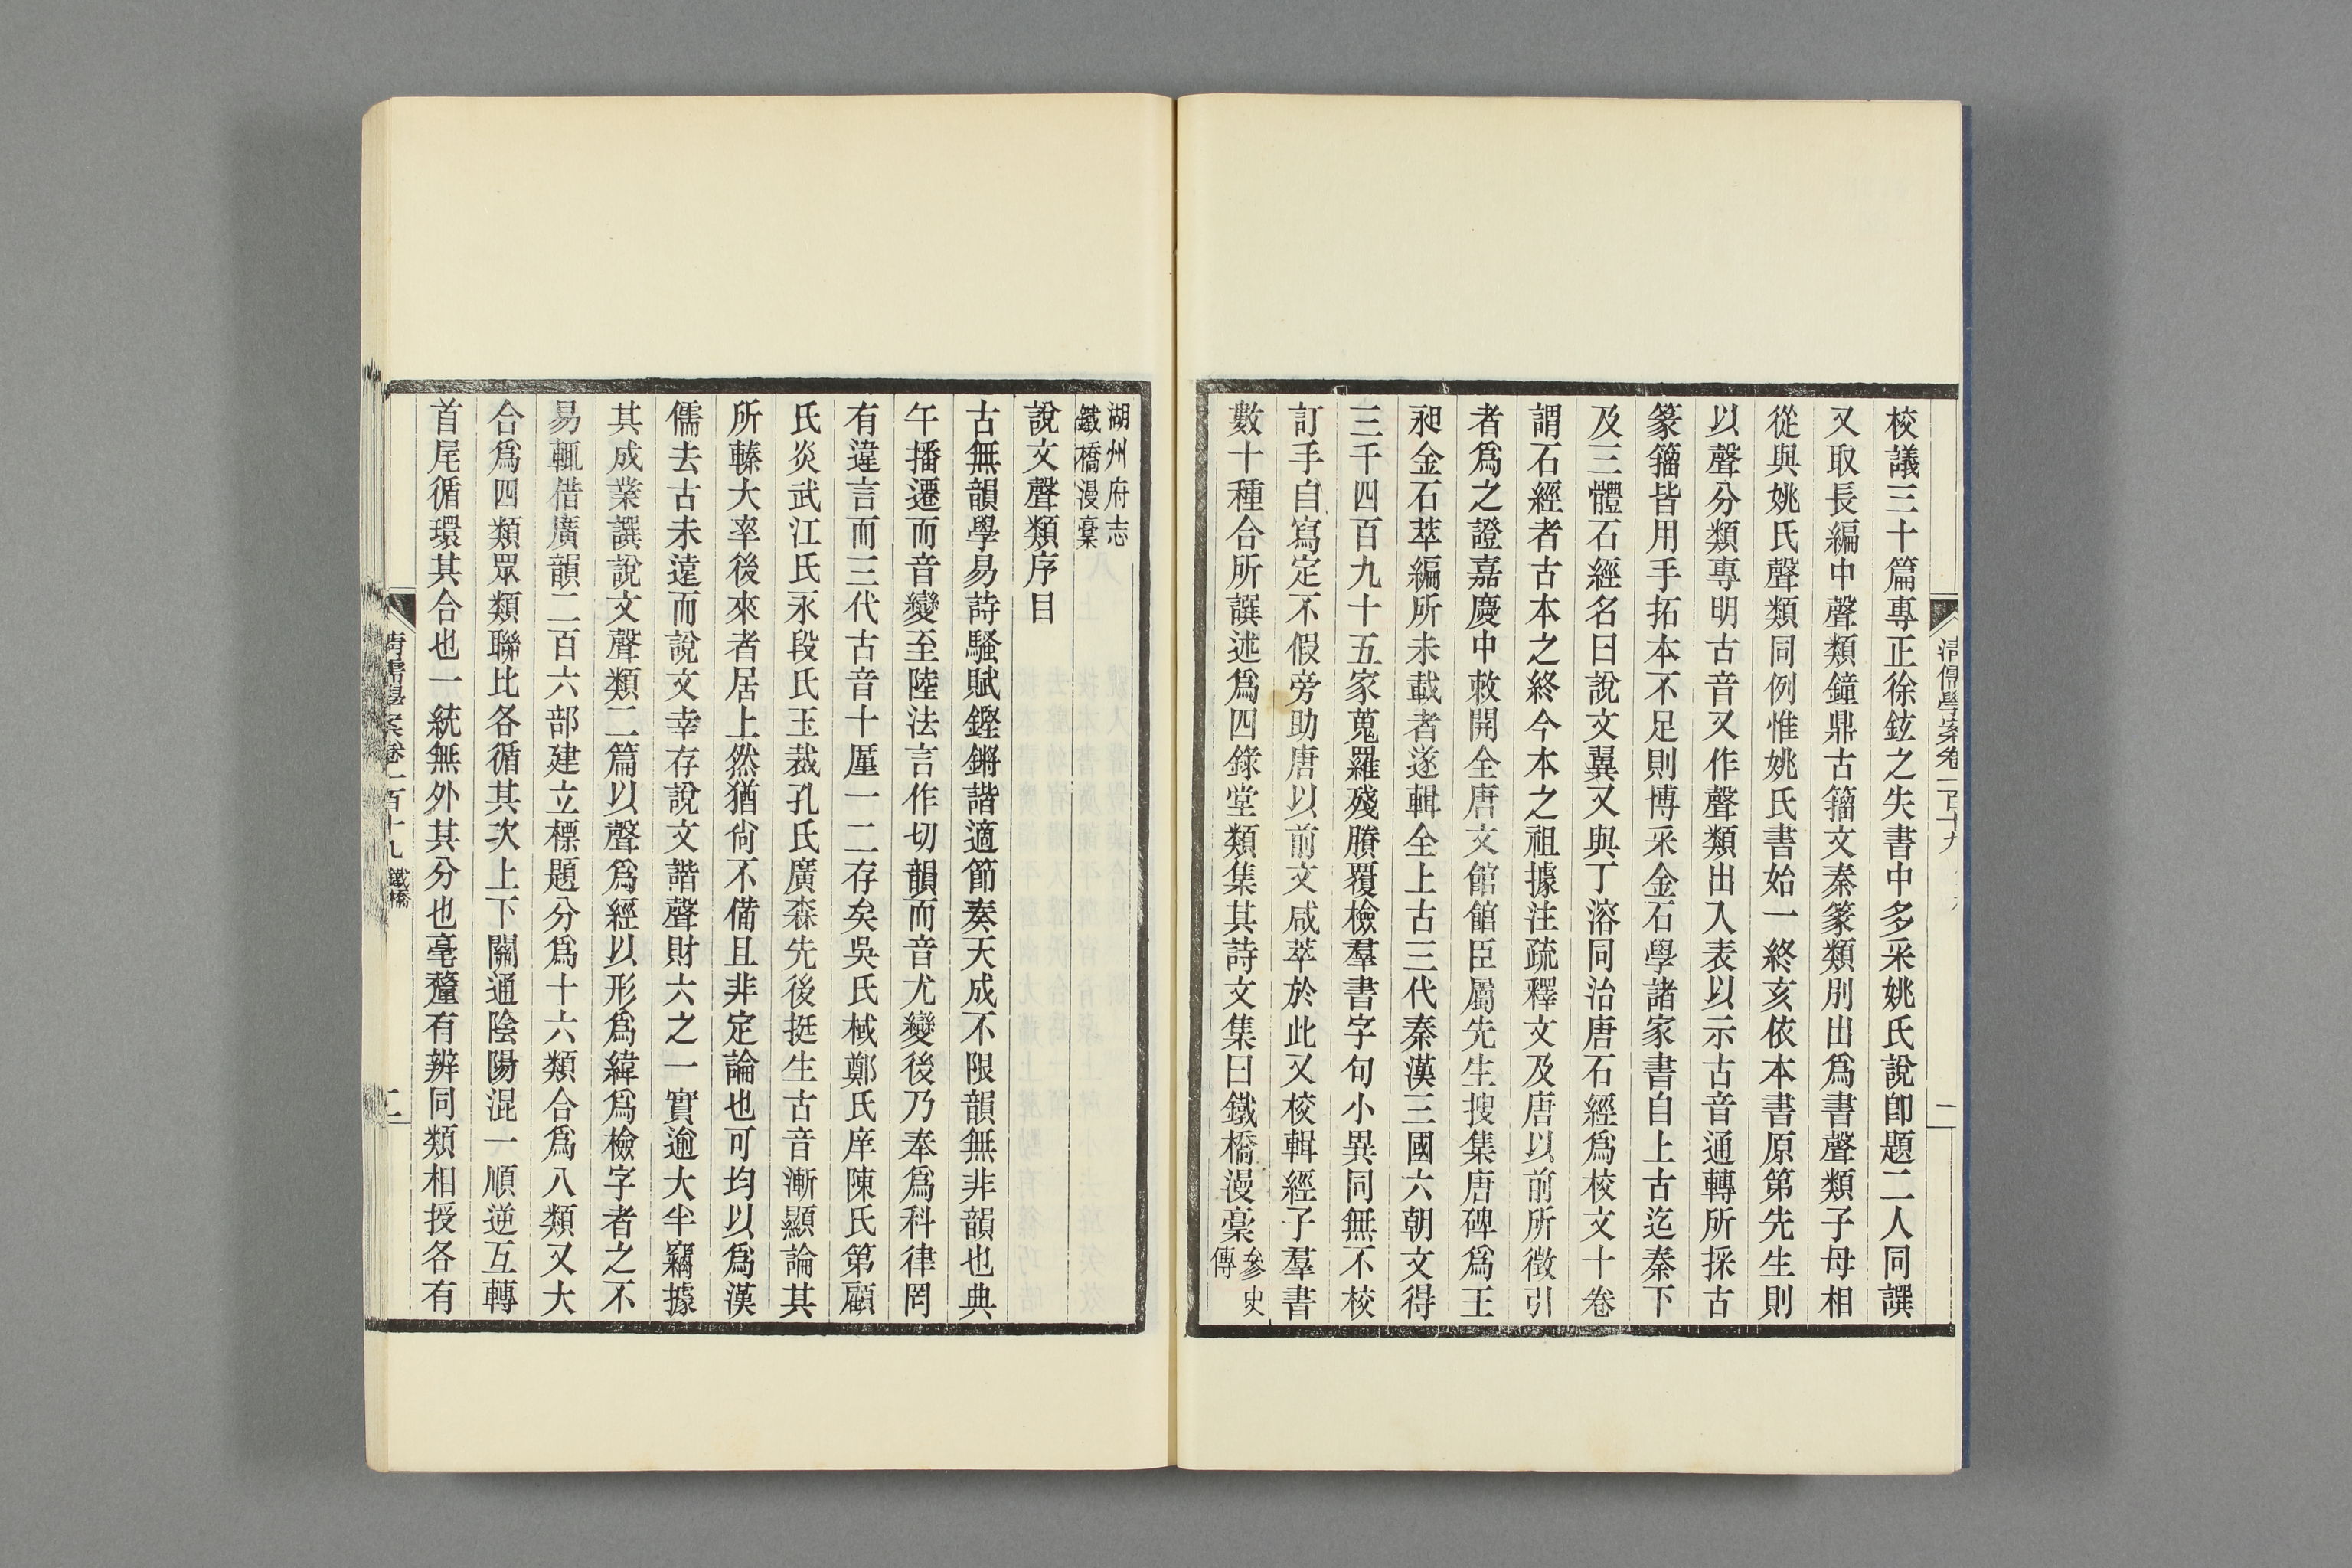 清儒學案卷一百十九
一
校議三十篇專正徐鉉之失書中多采姚氏說卽題二人同譔
又取長編中聲類鐘鼎古籀文秦篆類別出爲書聲類子母相
從與姚氏聲類同例惟姚氏書始一終亥依本書原第先生則
以聲分類專明古音又作聲類出入表以示古音通轉所採古
篆籀皆用手拓本不足則博采金石學諸家書自上古迄秦下
及三體石經名曰說文翼又與丁溶同治唐石經爲校文十卷
謂石經者古本之終今本之祖據注疏釋文及唐以前所徵引
者爲之證嘉慶中敕開全唐文館館臣屬先生搜集唐碑爲王
昶金石萃編所未載者遂輯全上古三代秦漢三國六朝文得
三千四百九十五家蒐羅殘賸覆檢羣書字句小異同無不校
訂手自寫定不假旁助唐以前文咸萃於此又校輯經子羣書
數十種合所譔述爲四錄堂類集其詩文集曰鐵橋漫稾參史
傳
湖州府志
鐵橋漫稾
說文聲類序目
古無韻學易詩騷賦鏗鏘諧適節奏天成不限韻無非韻也典
午播遷而音變至陸法言作切韻而音尤變後乃奉爲科律罔
有違言而三代古音十厪一二存矣吳氏棫鄭氏庠陳氏第顧
氏炎武江氏永段氏玉裁孔氏廣森先後挺生古音漸顯論其
所轃大率後來者居上然猶尙不備且非定論也可均以爲漢
儒去古未遠而說文幸存說文諧聲財六之一實逾大半竊據
其成業譔說文聲類二篇以聲爲經以形爲緯爲檢字者之不
易輒借廣韻二百六部建立標題分爲十六類合爲八類又大
合爲四類眾類聯比各循其次上下關通陰陽混一順逆互轉
首尾循環其合也一統無外其分也毫釐有辨同類相授各有
清儒學案卷一百十九 鐵橋
二